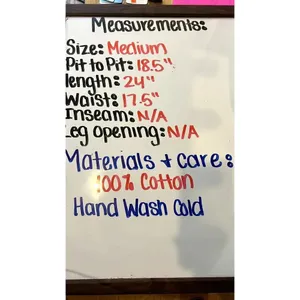 Measurements:
Size: Medium
Pit to Pit: 18.5"
length: 24"
Waist: 17.5"
Inseam: N/A
Leg opening: N/A
Materials + Care:
100% Cotton
Hand Wash Cold